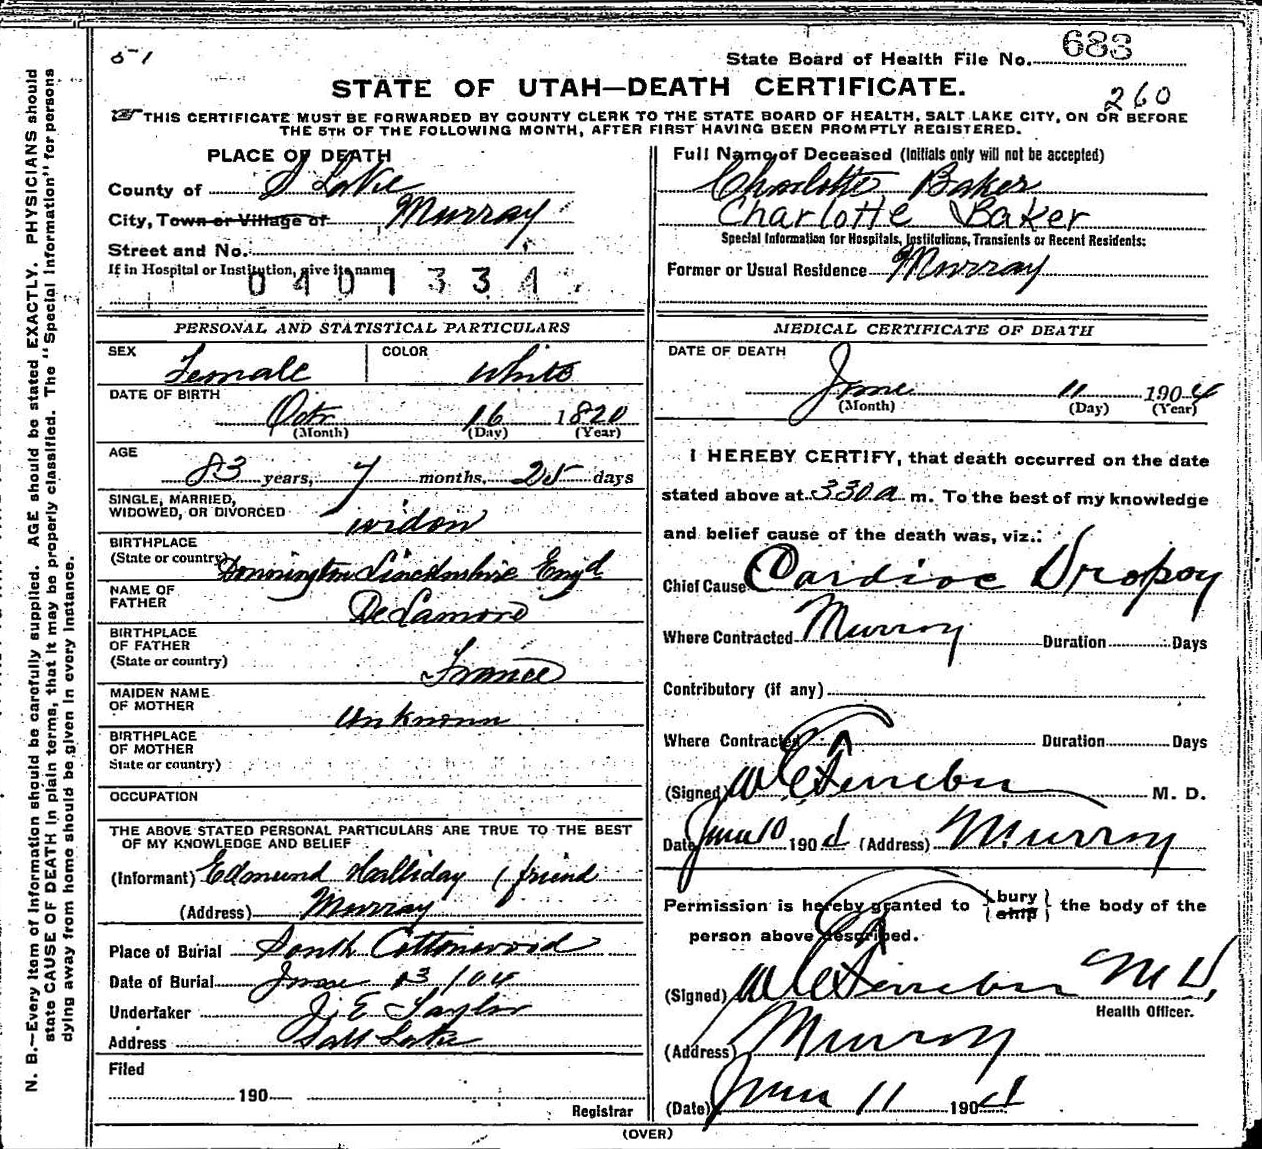 51
State Board of Health File No. 683
STATE OF UTAH—DEATH CERTIFICATE.
260
THIS CERTIFICATE MUST BE FORWARDED BY COUNTY CLERK TO THE STATE BOARD OF HEALTH, SALT LAKE CITY, ON OR BEFORE
THE 5TH OF THE FOLLOWING MONTH, AFTER FIRST HAVING BEEN PROMPTLY REGISTERED.
PLACE OF DEATH
County of S Lake
City, Town or Village of Murray
Street and No.
If in Hospital or Institution, give its name
0401334
PERSONAL AND STATISTICAL PARTICULARS
SEX Female COLOR White
DATE OF BIRTH
Octr 16 1820
(Month) (Day) (Year)
AGE
83 years, 7 months, 25 days
SINGLE, MARRIED,
WIDOWED, OR DIVORCED widow
BIRTHPLACE
(State or country) Donnington Lincolnshire Engd
NAME OF
FATHER De Lamore
BIRTHPLACE
OF FATHER
(State or country) France
MAIDEN NAME
OF MOTHER Unknown
BIRTHPLACE
OF MOTHER
State or country)
OCCUPATION
THE ABOVE STATED PERSONAL PARTICULARS ARE TRUE TO THE BEST
OF MY KNOWLEDGE AND BELIEF
(Informant) Edmund Halliday (friend
(Address) Murray
Place of Burial South Cottonwood
Date of Burial June 13 / 04
Undertaker J. E Taylor
Address Salt Lake
Filed
190
Registrar
Full Name of Deceased (Initials only will not be accepted)
Charlotte Baker
Charlotte Baker
Special Information for Hospitals, Institutions, Transients or Recent Residents:
Former or Usual Residence Murray
MEDICAL CERTIFICATE OF DEATH
DATE OF DEATH
June 11 1904
(Month) (Day) (Year)
I HEREBY CERTIFY, that death occurred on the date
stated above at 330 a m. To the best of my knowledge
and belief cause of the death was, viz.:
Chief Cause Cardiac Dropsy
Where Contracted Murray Duration Days
Contributory (if any)
Where Contracted Duration Days
(Signed) M. D.
Date June 10 1904 (Address) Murray
Permission is hereby granted to {bury ship} the body of the
person above described.
(Signed) M D,
Health Officer.
(Address) Murray
(Date) June 11 1904
(OVER)
N. B.—Every item of information should be carefully supplied. AGE should be stated EXACTLY. PHYSICIANS should
state CAUSE OF DEATH in plain terms, that it may be properly classified. The "Special Information" for persons
dying away from home should be given in every instance.